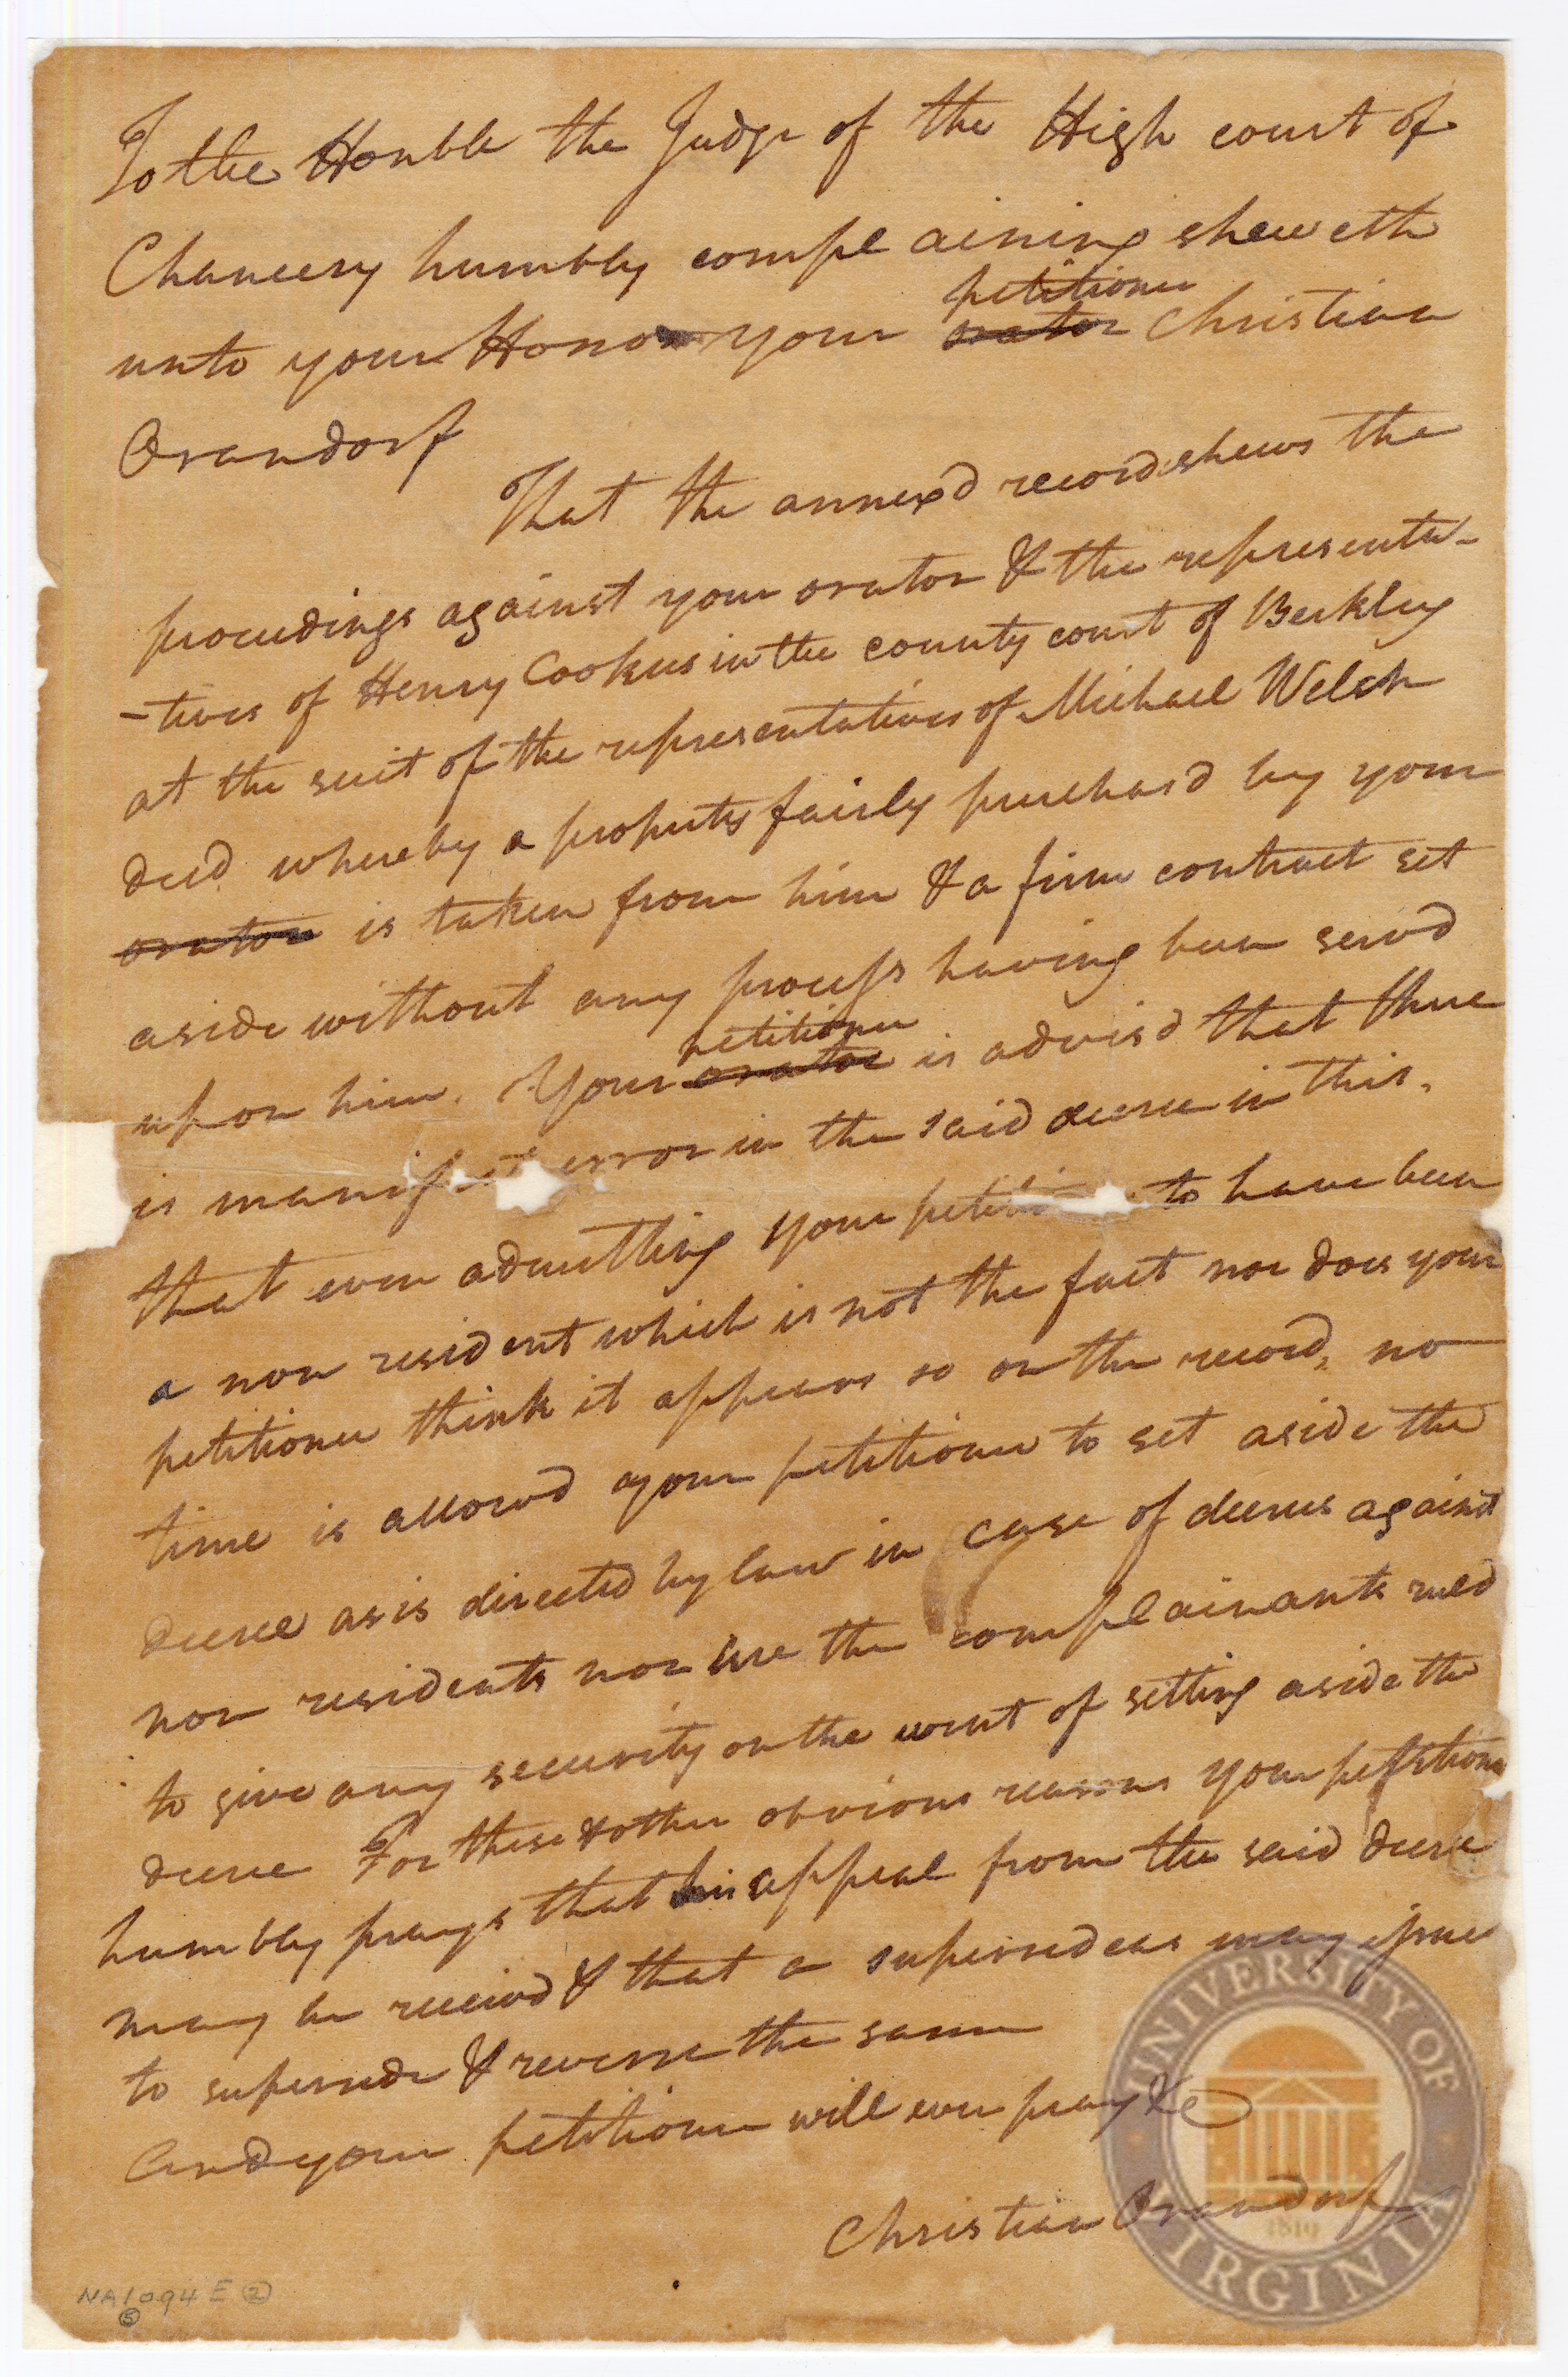 To the Honble the Judge of the High court of
Chancery humbly complaining sheweth
petitioner
unto your Honor your orator Christian
Orandorf
That the annexd record shews the
proceedings against your orator & the representa-
-tives of Henry Cookus in the county court of Berkley
at the suit of the representatives of Michael Welsh
decd. whereby a property fairly purchasd by your
orator is taken from him & a firm contract set
aside without any process having been servd
petitioner
upon him. Your orator is advisd that there
is manifest error in the said decree in this.
that even admitting your to have been
a non resident which is not the fact nor does your
petitioner think it appears so on the record, no
time is allowd your petitioner to set aside the
decree as is directed by law in case of decrees against
non residents nor are the complainants ruled
to give any security on the event of setting aside the
decree For these & other obvious reasons your petitioner
humbly prays that his appeal from the said decree
may be receivd & that a supersedeas may issue
to supersede & reverse the same
And your petitioner will ever pray &c
Christian Orandorf
NA 1094 E 2
5
UNIVERSITY OF
VIRGINIA
1819